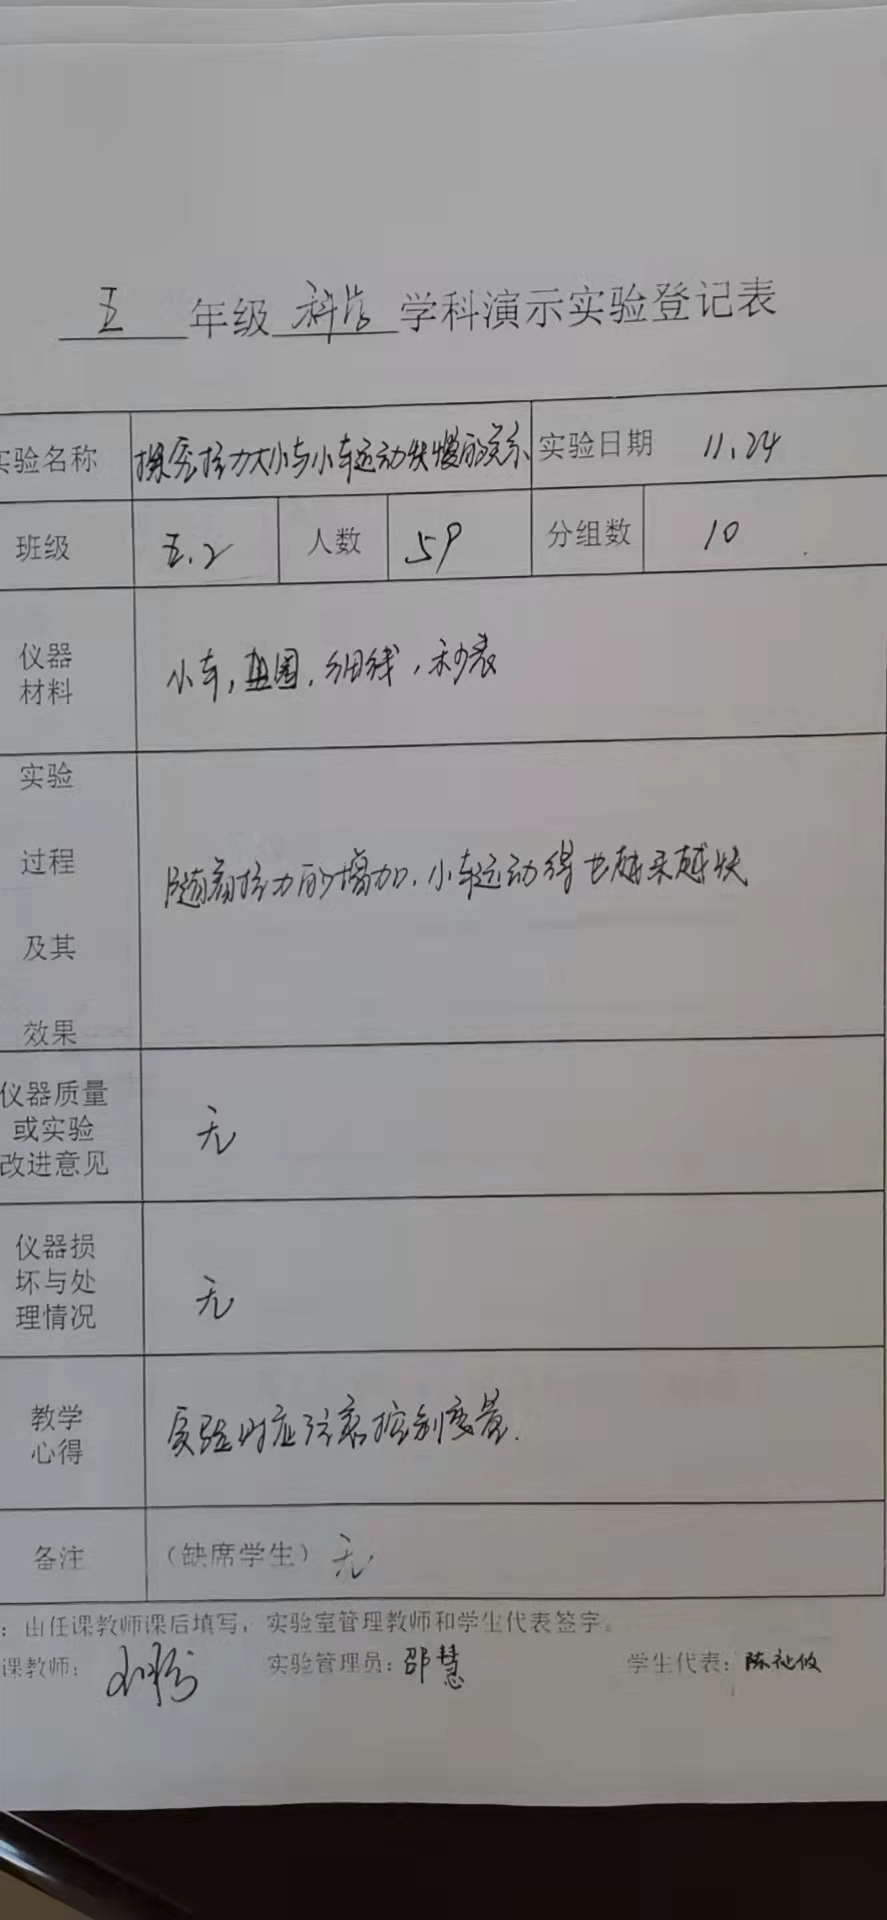 五 年级 科学 学科演示实验登记表
实验名称 探究拉力大小与小车运动快慢的关系 实验日期 11.24
班级 五.2 人数 59 分组数 10
仪器 材料
小车，垫圈，细线，秒表
实验
过程
随着拉力的增加，小车运动得也越来越快
及其
效果
仪器质量
或实验
改进意见
无
仪器损
坏与处
理情况
无
教学
心得
实验时应注意控制变量.
备注 (缺席学生) 无
：由任课教师课后填写，实验室管理教师和学生代表签字。
课教师： 实验管理员：邵慧 学生代表：陈